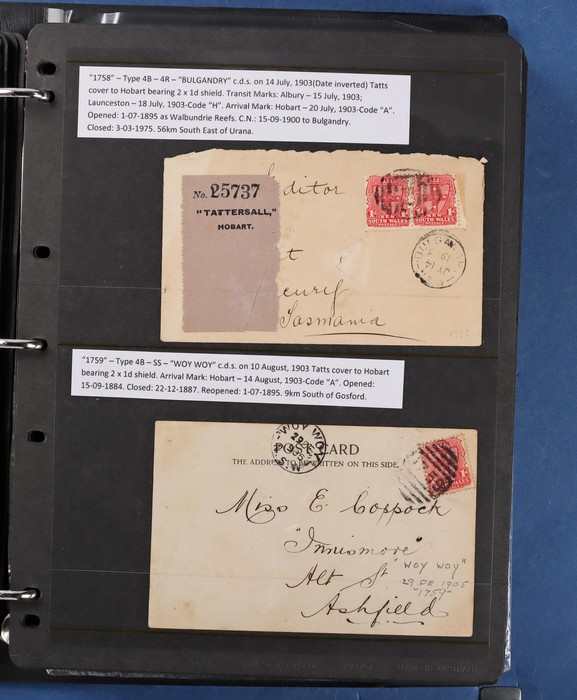 "1758" – Type 4B – 4R – "BULGANDRY" c.d.s. on 14 July, 1903(Date inverted) Tatts
cover to Hobart bearing 2 x 1d shield. Transit Marks: Albury – 15 July, 1903;
Launceston – 18 July, 1903-Code "H". Arrival Mark: Hobart – 20 July, 1903-Code "A".
Opened: 1-07-1895 as Walbundrie Reefs. C.N.: 15-09-1900 to Bulgandry.
Closed: 3-03-1975. 56km South East of Urana.
No. 25737
"TATTERSALL,"
HOBART.
editor
Tasmania
1d 1d
SOUTH WALES SOUTH WALES
POSTAGE POSTAGE
1758
"1759" – Type 4B – SS – "WOY WOY" c.d.s. on 10 August, 1903 Tatts cover to Hobart
bearing 2 x 1d shield. Arrival Mark: Hobart – 14 August, 1903-Code "A". Opened:
15-09-1884. Closed: 22-12-1887. Reopened: 1-07-1895. 9km South of Gosford.
WOY WOY
POST CARD
THE ADDRESS TO BE WRITTEN ON THIS SIDE.
Miss E. Coppock
"Innismore"
Alt St
"WOY WOY"
29 DE 1905
"1759"
Ashfield